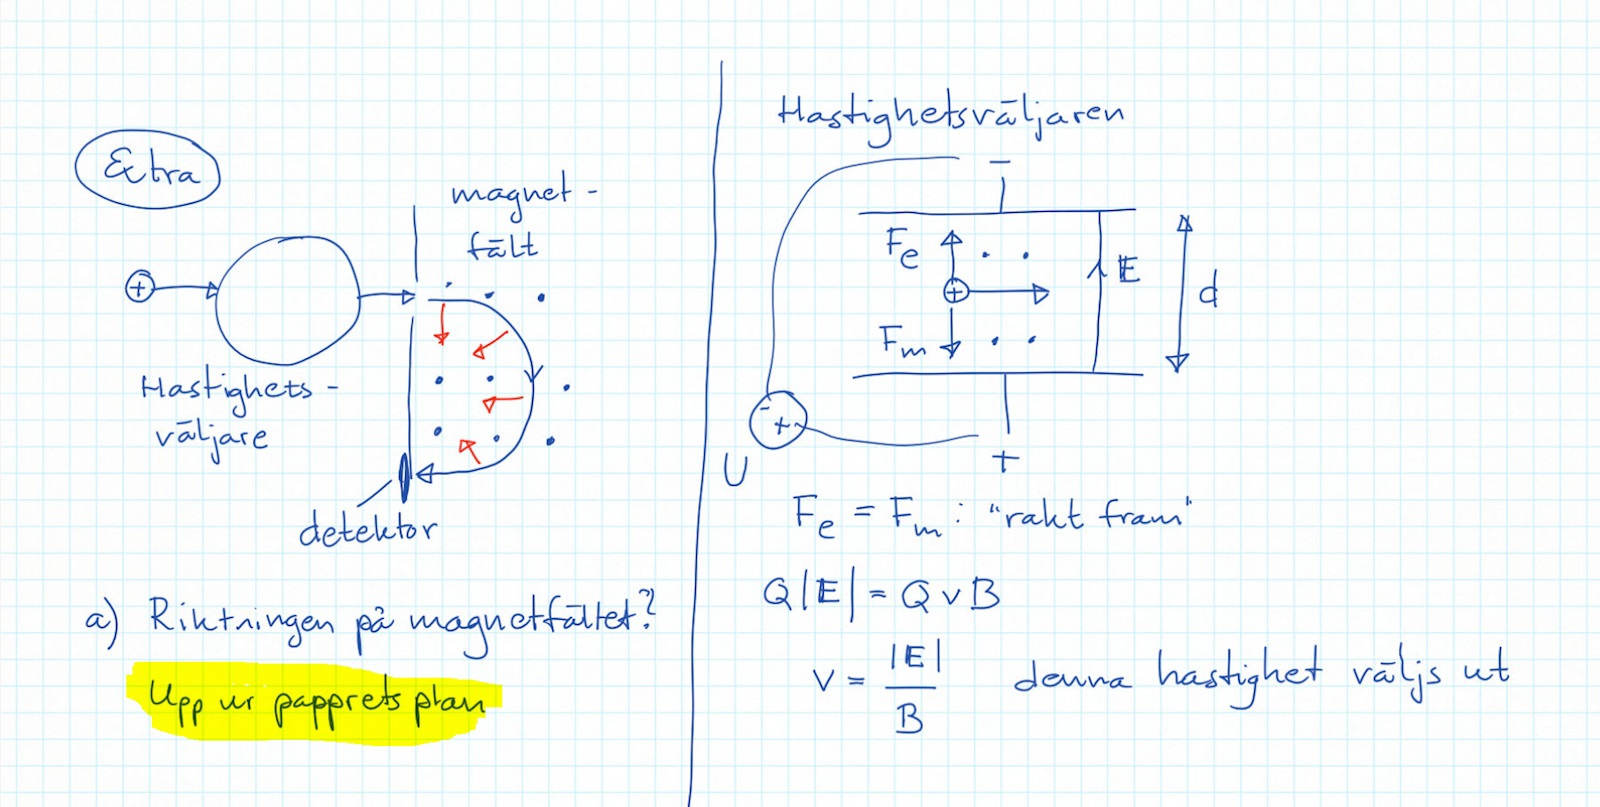 Extra
magnet-
fält
+
Hastighets-
väljare
detektor
a) Riktningen på magnetfältet?
Upp ur papprets plan
Hastighetsväljaren
−
Fe
E
d
+
Fm
- +
U
+
Fe = Fm : "rakt fram"
Q|E| = QvB
v = |E| / B denna hastighet väljs ut